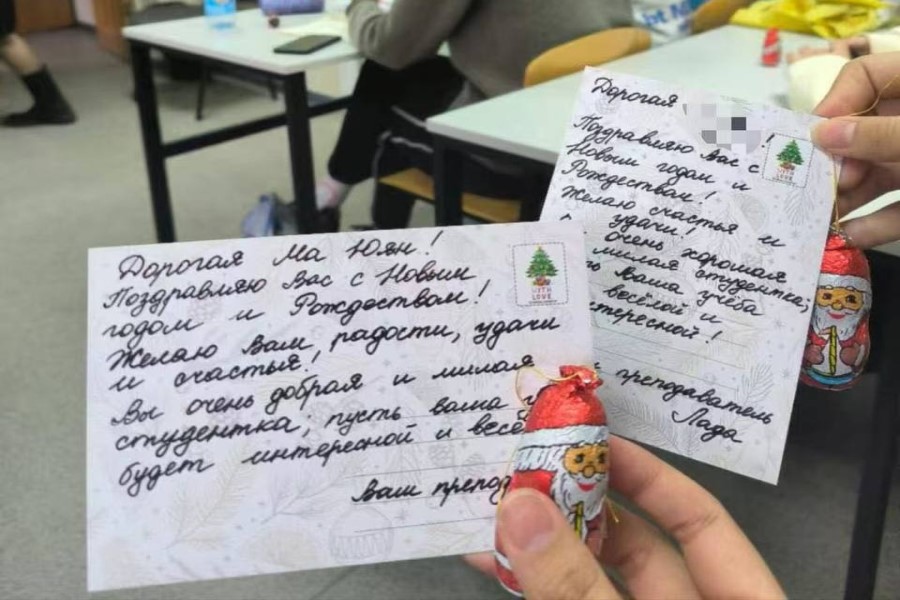 Дорогая Ма Юян!
Поздравляю Вас с Новым
годом и Рождеством!
Желаю Вам радости, удачи
и счастья!
Вы очень добрая и милая
студентка, пусть ваша
будет интересной и
Ваш
WITH
LOVE
Дорогая
Поздравляю Вас с
Новым годом и
Рождеством!
Желаю счастья и
удачи!
очень хорошая
милая студентка,
Ваша учёба
весёлой и
преподаватель
Лада